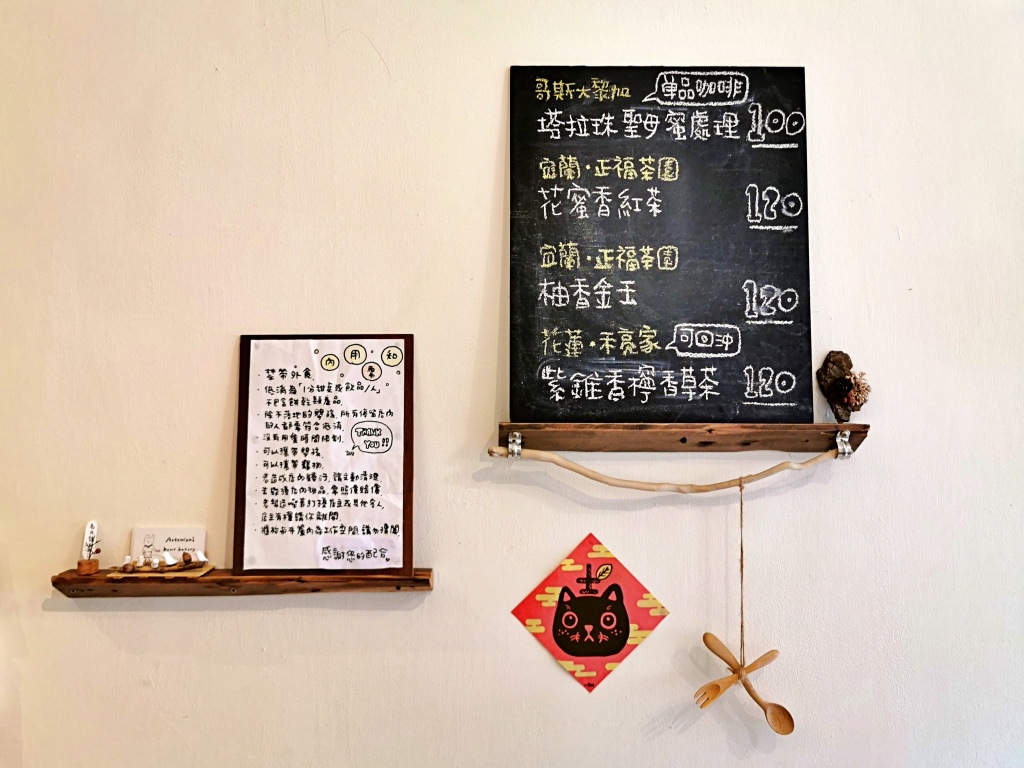 哥斯大黎加 單品咖啡
塔拉珠聖母蜜處理 100
宜蘭·正福茶園
花蜜香紅茶 120
宜蘭·正福茶園
柚香金玉 120
花蓮·禾亮家 可回沖
紫錐香檸香草茶 120
內用需知
·禁帶外食.
·低消為「1分甜點或飲品/人」
不包含餅乾類產品.
·除不落地的嬰孩,所有停留店內
的人都需符合低消.
·沒有用餐時間限制.
THANK YOU!!
·可以攜帶嬰孩.
·可以攜帶寵物.
·若造成店內髒污,請主動清理.
店主有權請你離開.
感謝您的配合